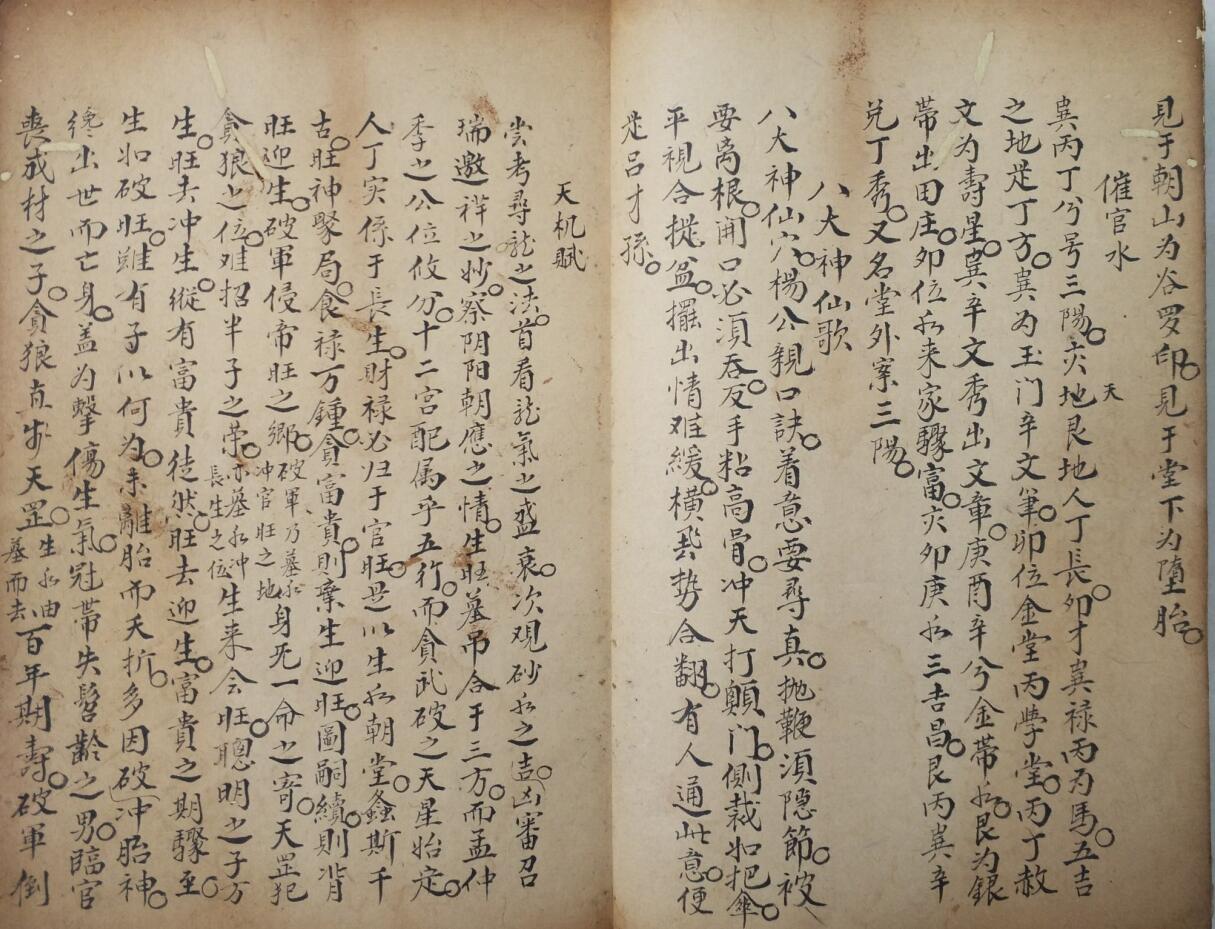 见于朝山为谷罗印。见于堂下为堕胎。
催官水
巽丙丁兮号三陽。灾地艮地人丁長。卯才巽禄丙为馬。五吉
天
之地是丁方。巽为玉门辛文筆。卯位金堂丙學堂。丙丁赦
文为壽星。巽辛文秀出文章。庚酉辛兮金帶水。艮为銀
帶出田庄。卯位水来家驟富。灾卯庚水三吉昌。艮丙巽辛
兑丁秀。又名堂外案三陽。
八大神仙歌
八大神仙穴。楊公親口訣。着意要尋真。抛鞭須隐節。被
要离根。開口必須吞。反手粘高骨。冲天打顖门。側裁如把傘。
平視合提盆。擺出情难緩。横飛势合翻。有人通此意。便
是呂才孫。
天机賦
尝考尋龍之法。首看龍氣之盛衰。次观砂水之吉凶。審召
瑞邀祥之妙。察阴阳朝應之情。生旺墓吊合于三方。而孟仲
季之公位攸分。十二宫配属乎五行。而貪武破之天星始定。
人丁实係于長生。財禄必归于官旺。是以生水朝堂。螽斯千
古。旺神聚局。食禄万鍾。貪富貴。則棄生迎旺。圖嗣續。則背
旺迎生。破軍侵帝旺之鄉。破軍乃墓水冲官旺之地身死一命之寄。天罡犯
貪狼之位。难招半子之荣。亦墓水冲長生之位生来会旺。聰明之子方
生。旺去冲生。縱有富貴徒然。旺去迎生。富貴之期驟至。
生如破旺。雖有子以何为。未離胎而夭折。多因破冲胎神。
纔出世而亡身。盖为擊傷生氣。冠帶失髫齡之男。臨官
喪成材之子。貪狼直步天罡。生水由墓而去百年期壽。破軍倒